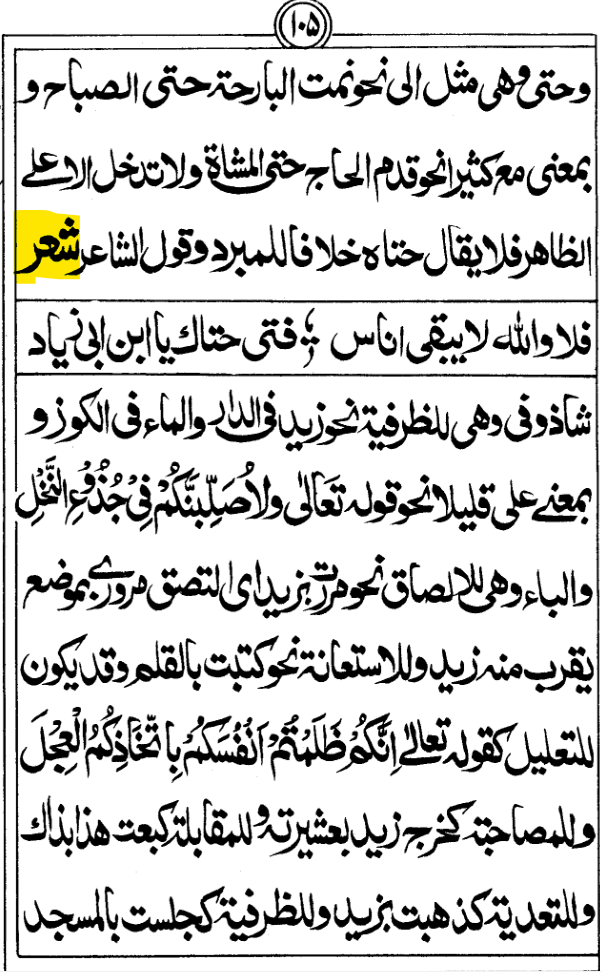 ١٠٥
وحتى وهى مثل الى نحو نمت البارحة حتى الصباح و
بمعنى مع كثيرا نحو قدم الحاج حتى المشاة ولا تدخل الا على
الظاهر فلا يقال حتاه خلافا للمبرد وقول الشاعر شعر
فلا والله لا يبقى اناس ؛ فتى حتاك يا ابن ابى زياد
شاذ وفى وهى للظرفية نحو زيد فى الدار والماء فى الكوز و
بمعنے على قليلا نحو قوله تَعَالٰى ولَاُصَلِّبَنَّكُمْ فِىْ جُذُوْعِ النَّخْلِ
والباء وهى للالصاق نحو مررت بزيد اى التصق مرورے بموضع
يقرب منه زيد وللاستعانة نحو كتبت بالقلم وقد يكون
للتعليل كقوله تعالےٰ اِنَّكُمْ ظَلَمْتُمْ اَنْفُسَكُمْ بِاتِّخَاذِكُمُ الْعِجْلَ
وللمصاحبة كخرج زيد بعشيرته وللمقابلة كبعت هذا بذاك
وللتعدية كذهبت بزيد وللظرفية كجلست بالمسجد